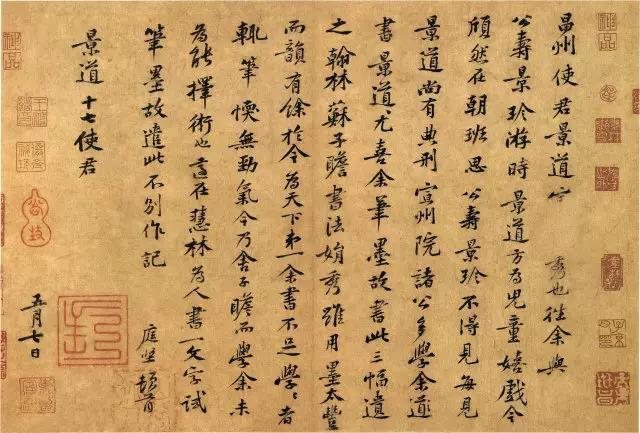 昌州使君景道宗 秀也往余與
公壽景珍游時景道方為兒童嬉戲今
頎然在朝班思公壽景珍不得見每見
景道尚有典刑宣州院諸公多學余
書景道尤喜余筆墨故書此三幅遺
之翰林蘇子瞻書法娟秀雖用墨太豐
而韻有餘於今為天下弟一余書不足學〻者
輒筆愞無勁氣今乃舍子瞻而學余未
為能擇術也適在慧林為人書一文字試
筆墨故遣此不別作記
庭堅頓首
景道十七使君
五月七日
神品